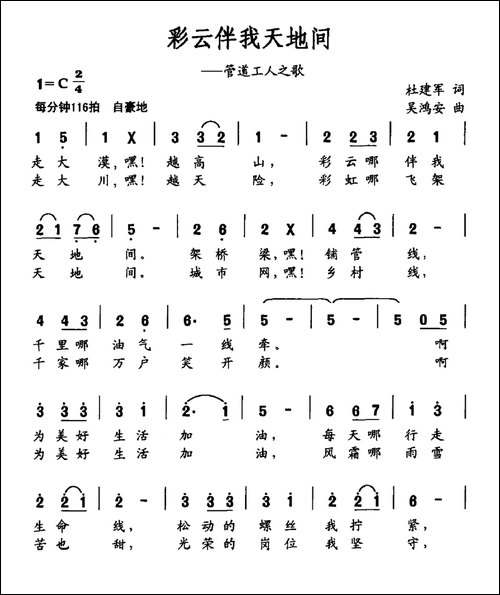 彩云伴我天地间
——管道工人之歌
1=C 2/4
每分钟116拍 自豪地
杜建军 词
吴鸿安 曲
1 5 | 1 X | 3 3 2 | 2 - | 2 2 3 | 2 1 |
走大 漠,嘿! 越高 山, 彩云哪 伴我
走大 川,嘿! 越天 险, 彩虹哪 飞架
2 1 7 6 | 5 - | 2 6 | 2 X | 4 4 3 | 2 - |
天 地 间。 架桥 梁,嘿! 铺管 线,
天 地 间。 城市 网,嘿! 乡村 线,
4 4 3 | 2 6 | 6· 5 | 5 - | 5 - | 5 0 5 |
千里哪 油气 一线 牵。 啊
千家哪 万户 笑开 颜。 啊
3 3 3 | 3 1 | 2· 1 | 5 - | 6 6 7 | 1 3 |
为美好 生活 加 油, 每天哪 行走
为美好 生活 加 油, 风霜哪 雨雪
2 2 1 | 2 - | 3 3 3 | 3 3 | 2 2 1 | 6 - |
生命 线, 松动的 螺丝 我拧 紧,
苦也 甜, 光荣的 岗位 我坚 守,